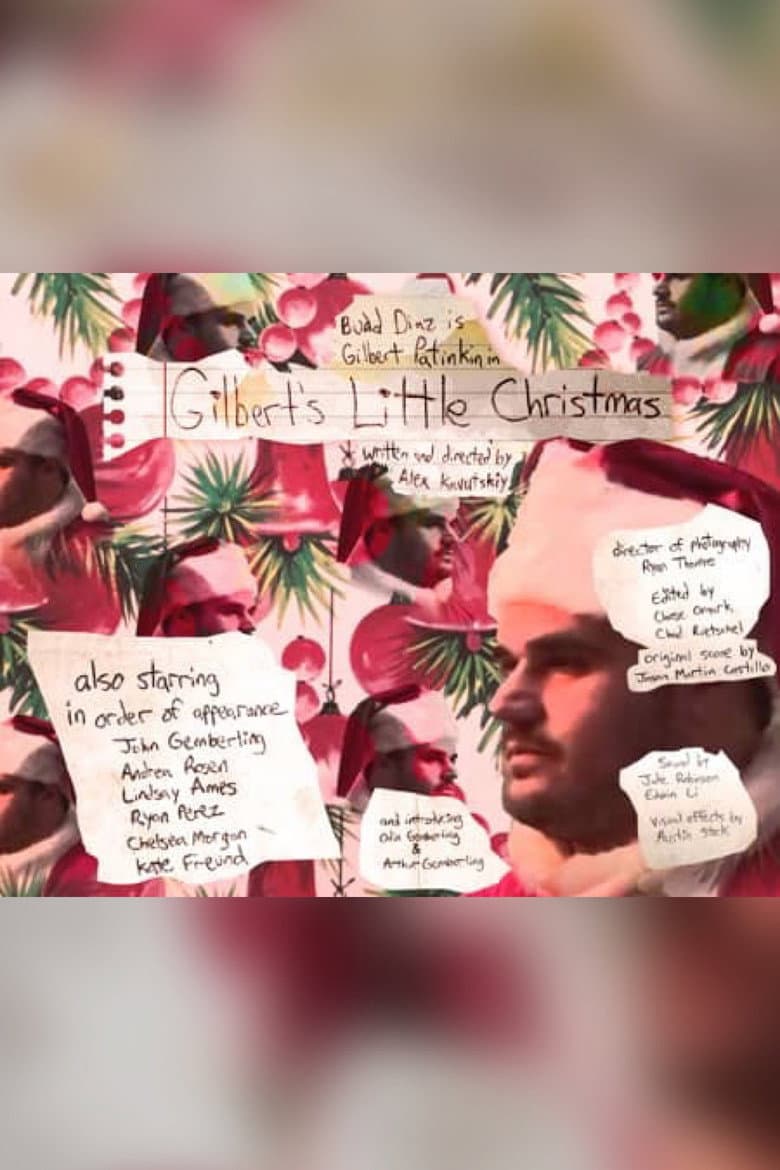 Budd Diaz is
Gilbert Patinkin in
Gilbert's Little Christmas
* written and directed by
Alex Kavutskiy
director of photography
Ryan Thomas
Edited by
Chad Rietschel
original score by
Jason Martin Castillo
also starring
in order of appearance
John Gemberling
Andrea Rosen
Lindsay Ames
Ryan Perez
Chelsea Morgan
Kate Freund
and introducing
Gemberling
&
Arthur Gemberling
Sound by
Jule Robinson
Edwin Li
Visual effects by
Austin